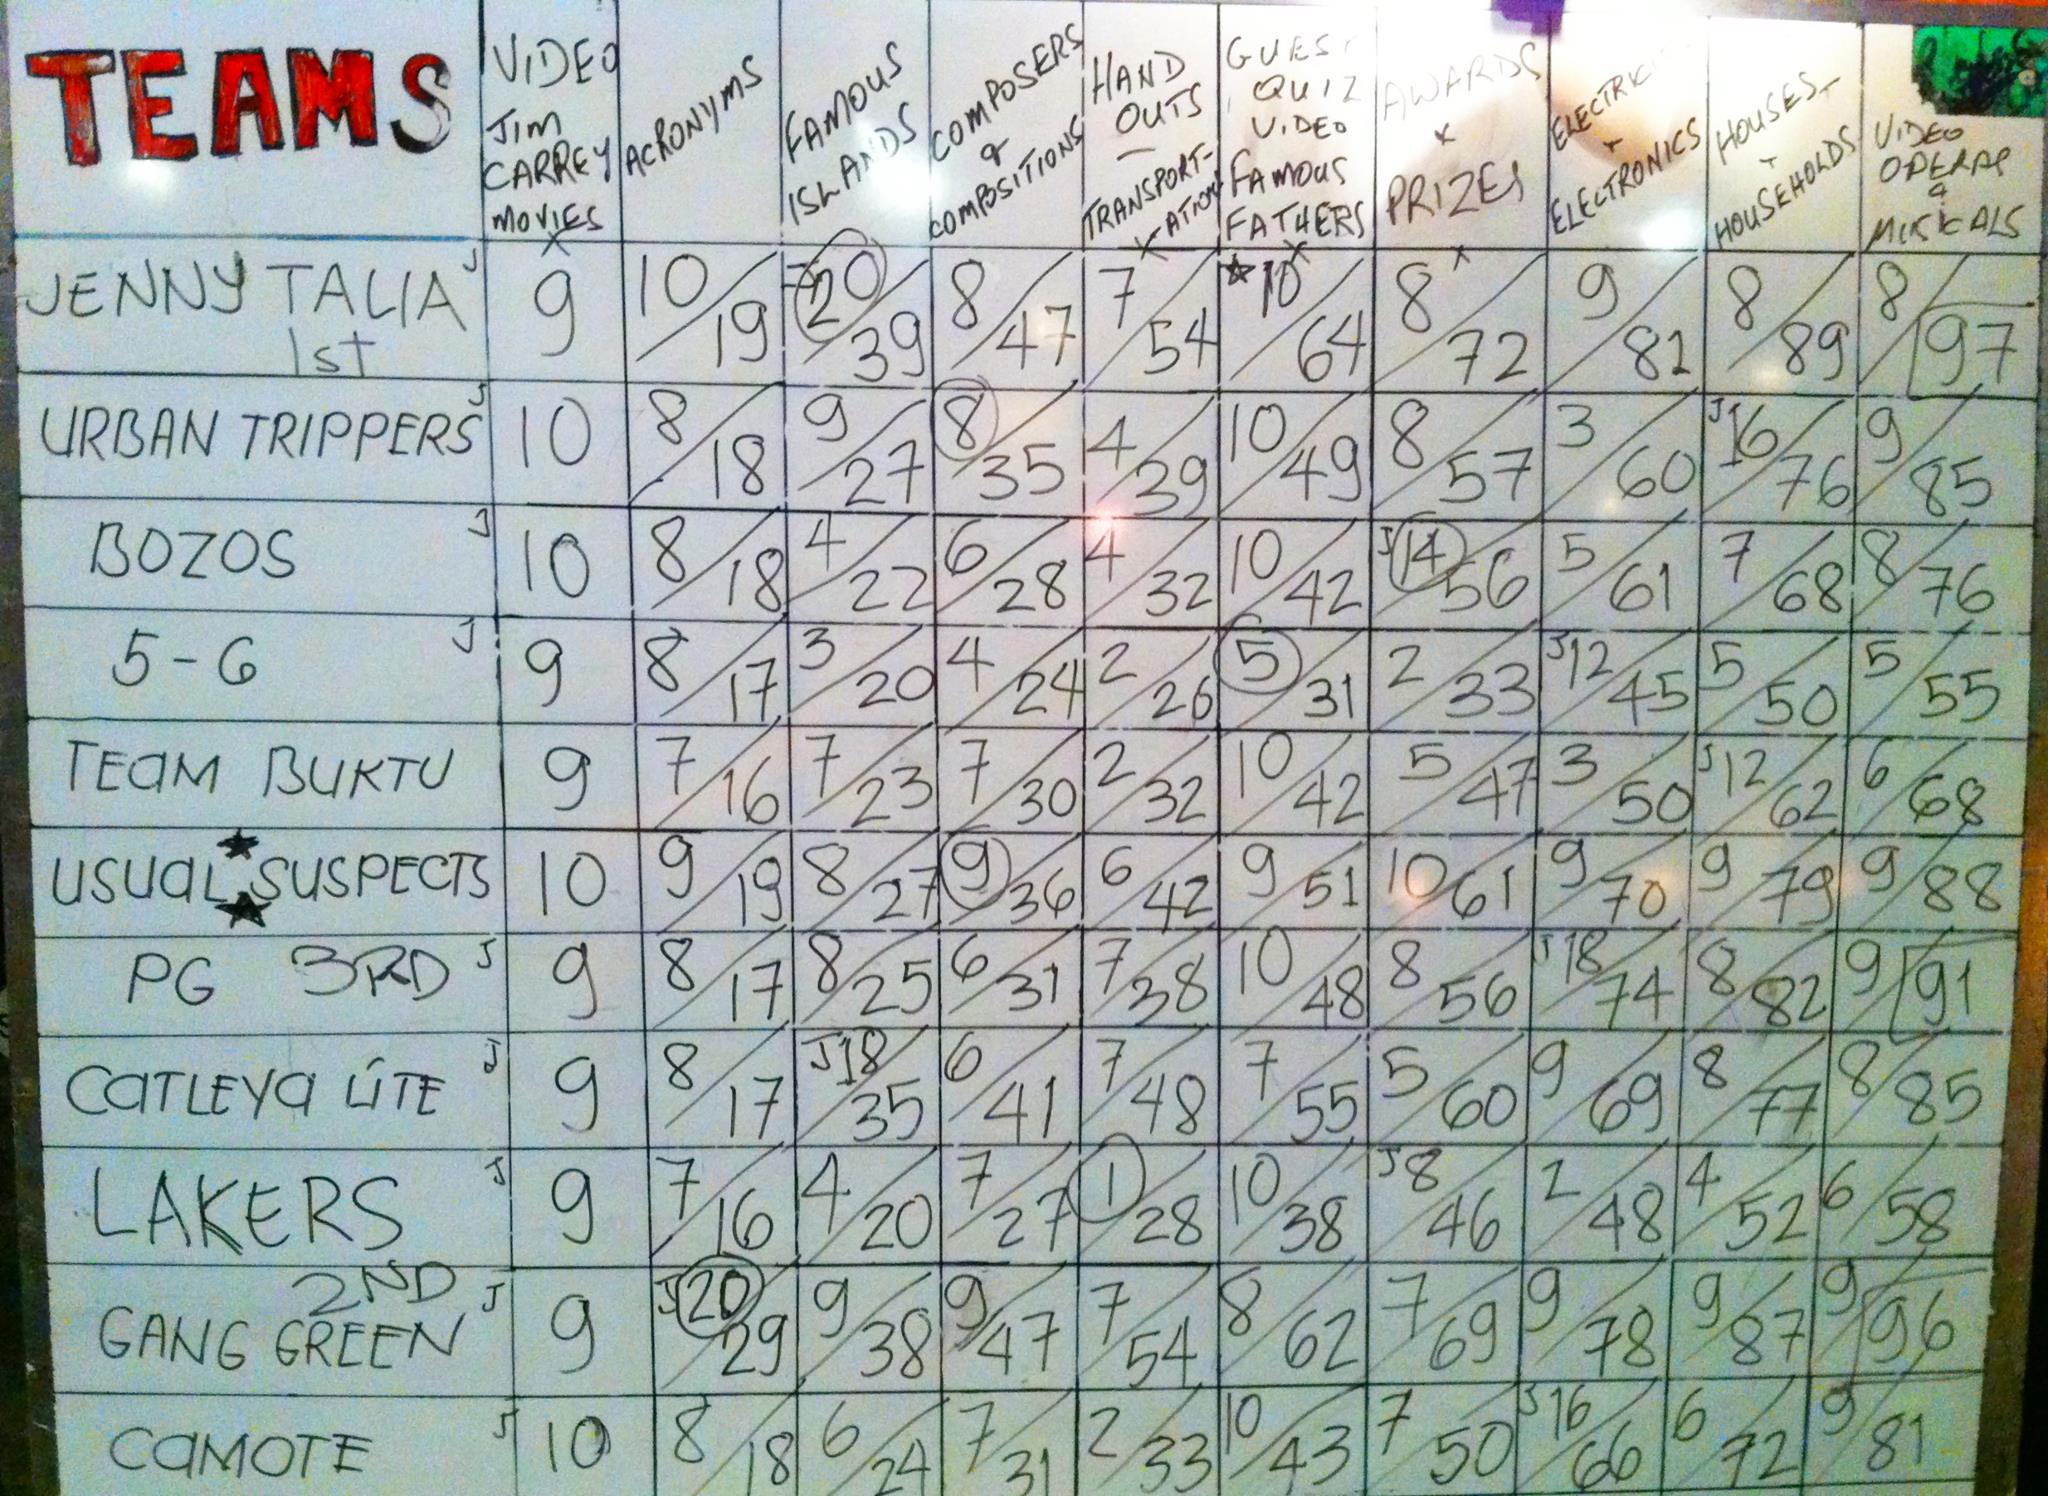 TEAMS
VIDEO JIM CARREY MOVIES X
ACRONYMS
FAMOUS ISLANDS
COMPOSERS & COMPOSITIONS
HAND OUTS — TRANSPORT-ATION X
QUIZ VIDEO FAMOUS FATHERS X
AWARDS X PRIZES X
+ ELECTRONICS
HOUSES + HOUSEHOLDS
VIDEO OPERAS & MUSICALS
JENNY TALIA J 1st 9 10/19 J 20/39 8/47 7/54 ★ 10/64 8/72 9/82 8/89 8/97
URBAN TRIPPERS J 10 8/18 9/27 8/35 4/39 10/49 8/57 3/60 J 16/76 9/85
BOZOS J 10 8/18 4/22 6/28 4/32 10/42 J 14/56 5/61 7/68 8/76
5-6 J 9 8/17 3/20 4/24 2/26 5/31 2/33 J 12/45 5/50 5/55
TEAM BUKTU 9 7/16 7/23 7/30 2/32 10/42 5/47 3/50 J 12/62 6/68
USUAL ★ ★ SUSPECTS 10 9/19 8/27 9/36 6/42 9/51 10/61 9/70 9/79 9/88
PG 3RD J 9 8/17 8/25 6/31 7/38 10/48 8/56 J 18/74 8/82 9/91
CATLEYA LITE J 9 8/17 J 18/35 6/41 7/48 7/55 5/60 9/69 8/77 8/85
LAKERS J 9 7/16 4/20 7/27 1/28 10/38 J 8/46 2/48 4/52 6/58
2ND GANG GREEN J 9 J 20/29 9/38 9/47 7/54 8/62 7/69 9/78 9/87 9/96
CAMOTE J 10 8/18 6/24 7/31 2/33 10/43 7/50 J 16/66 6/72 9/81